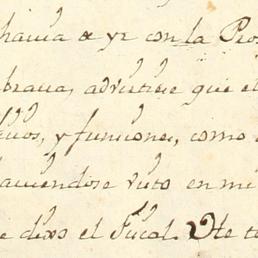 havia a yr con la Pro
brava, advirtiose que el
auos, y funciones, como
haviendose visto en mi
e dixo el Fiscal. He to